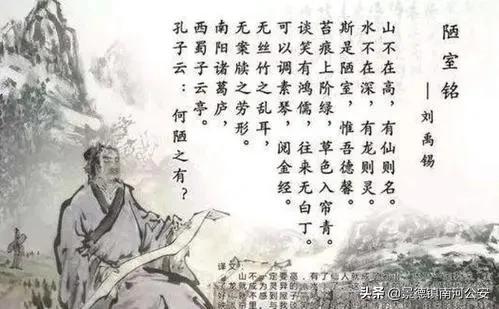 陋室铭
—刘禹锡
山不在高，有仙则名。
水不在深，有龙则灵。
斯是陋室，惟吾德馨。
苔痕上阶绿，草色入帘青。
谈笑有鸿儒，往来无白丁。
可以调素琴，阅金经。
无丝竹之乱耳，
无案牍之劳形。
南阳诸葛庐，
西蜀子云亭。
孔子云：何陋之有？
译文
头条 @景德镇南河公安